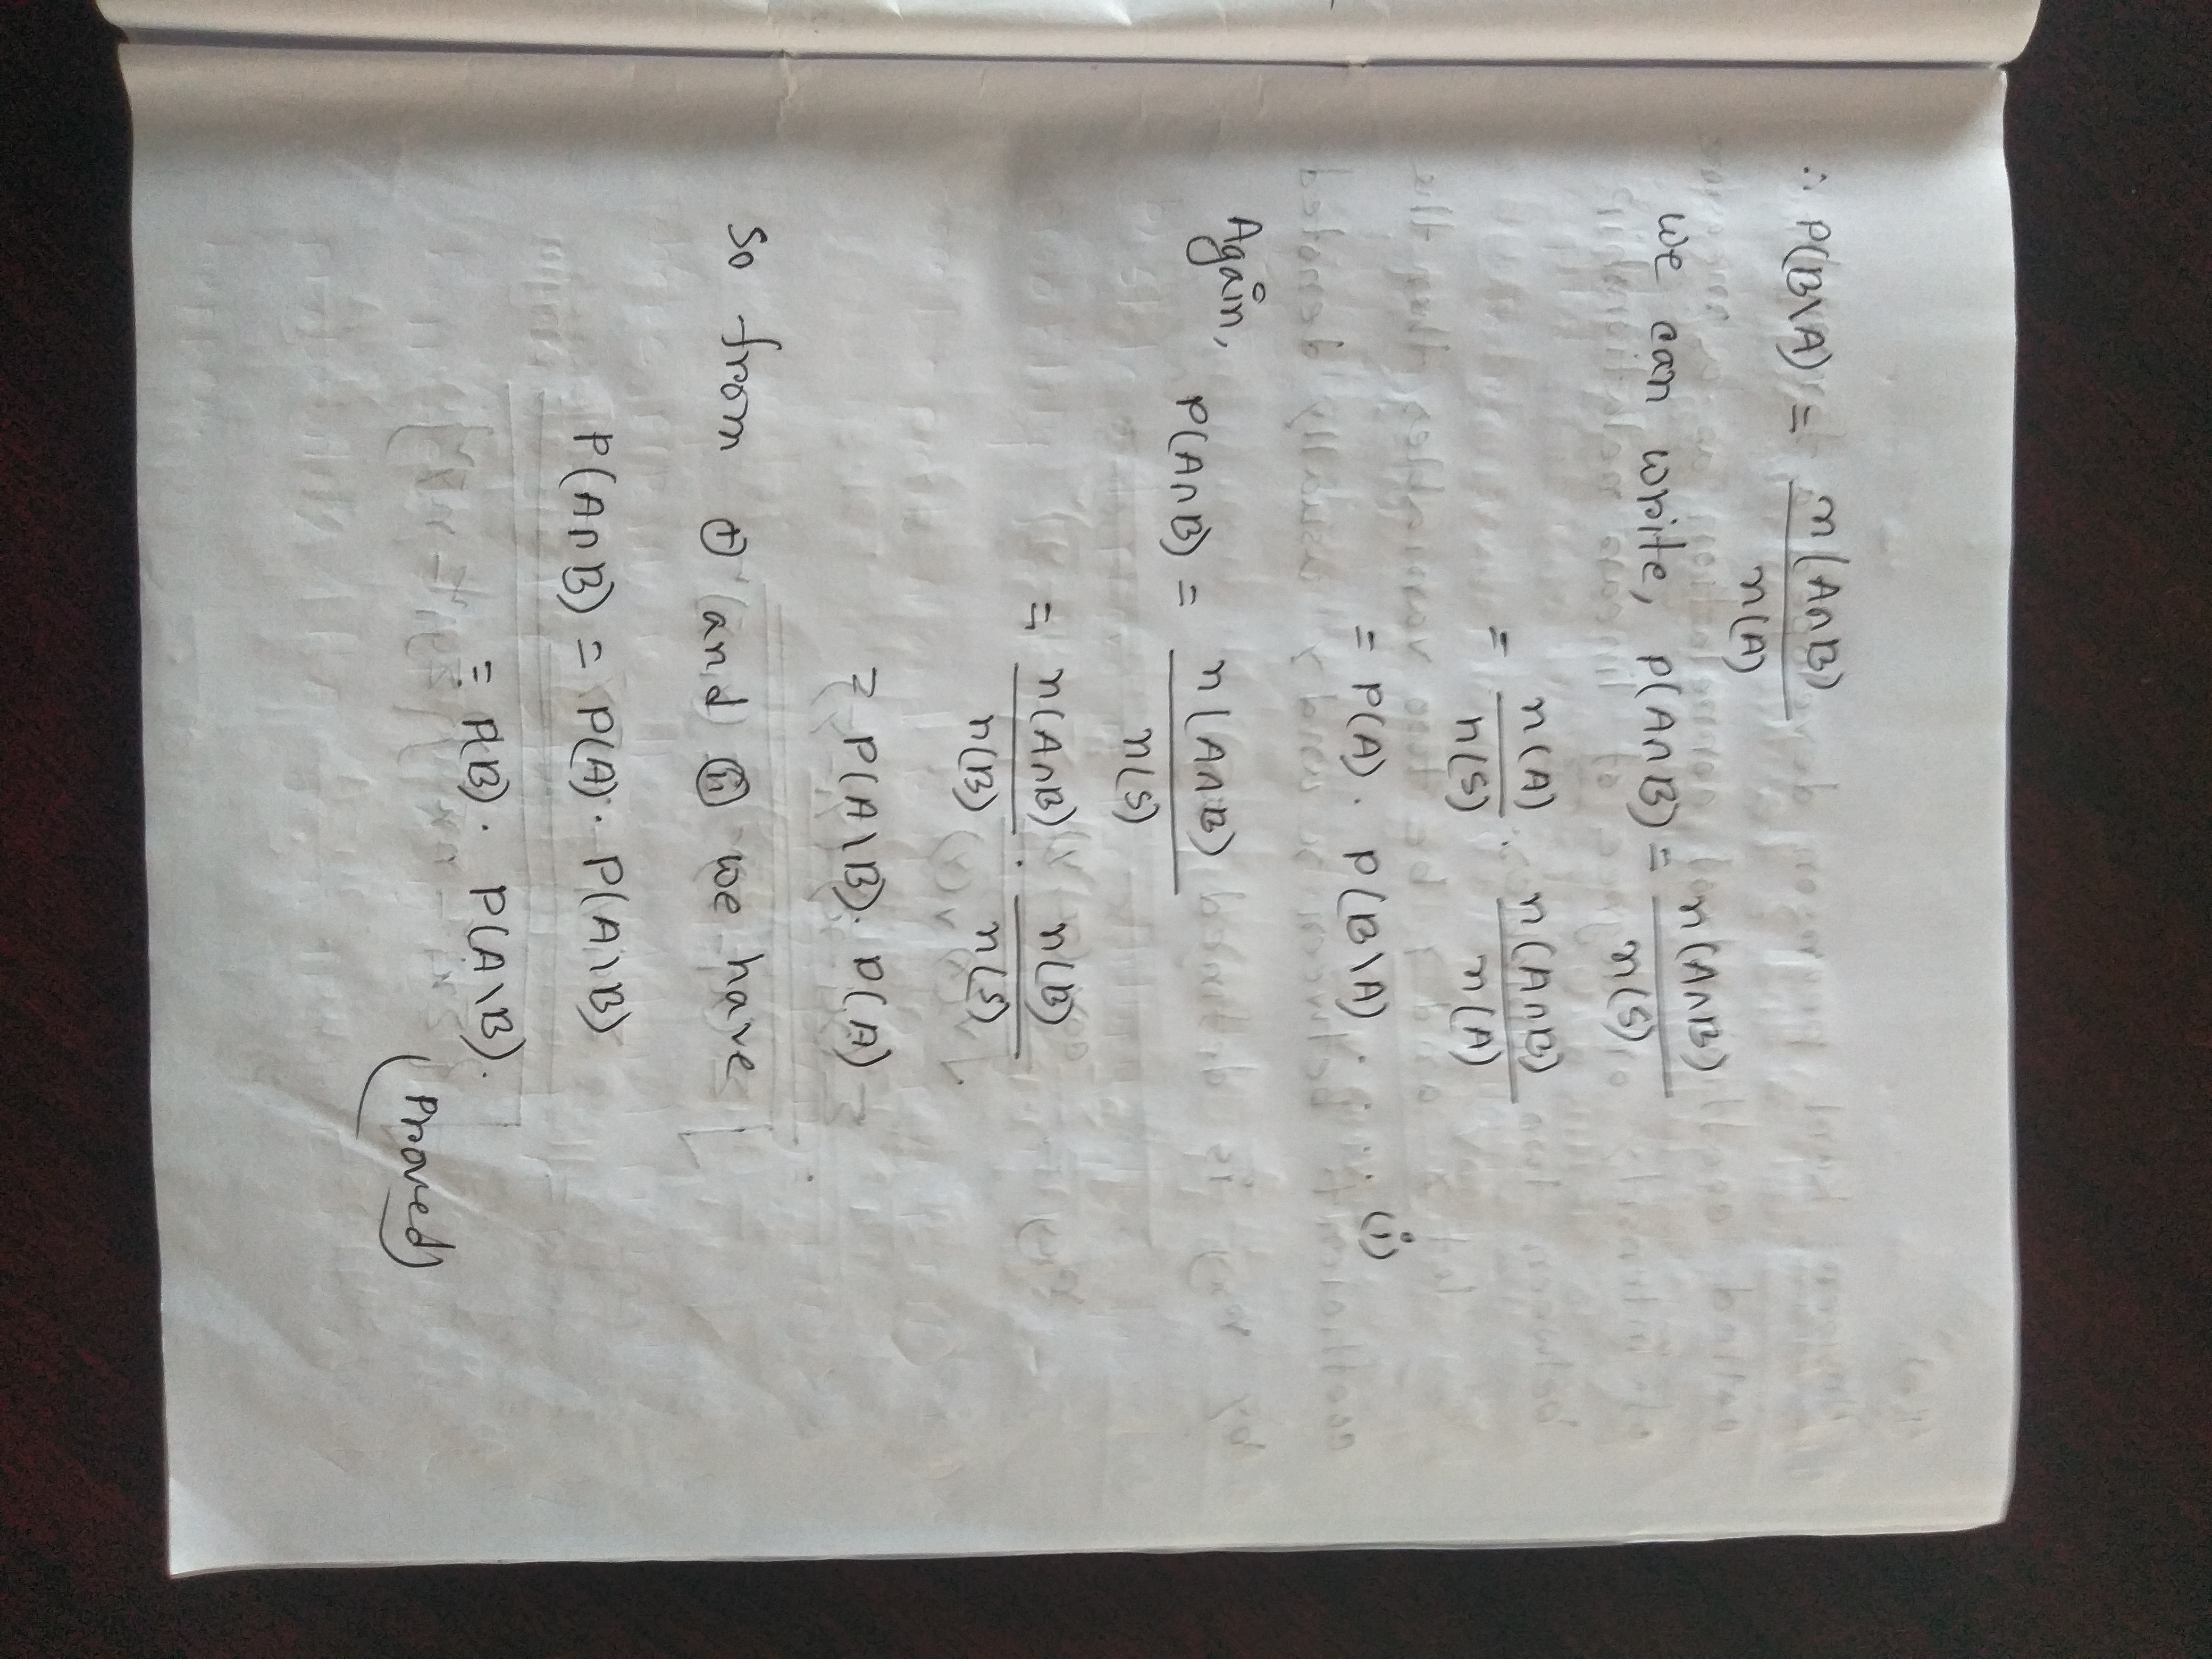 ∴ P(B\A) = n(A∩B) / n(A)
we can write, P(A∩B) = n(A∩B) / n(S)
= n(A) / n(S) · n(A∩B) / n(A)
= P(A) · P(B\A) · · · · (i)
Again,
P(A∩B) = n(A∩B) / n(S)
= n(A∩B) / n(B) · n(B) / n(S)
= P(A\B) · P(A)
So from (i) and (ii) we have
P(A∩B) = P(A) · P(A\B)
= P(B) · P(A\B).
(Proved)